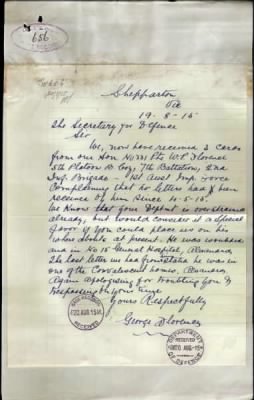 656
Shepparton
Vic
19-8-15
The Secretary for Defence
Sir
We, now have received 3 cards
from our Son No 1331 Pte W.P. Florence
5th Platoon B Coy, 7th Battalion, 2nd
Inf. Brigade - 1st Aust Imp. Force
Complaining that no letters had been
received by him since 10-5-15.
We Know that your Depart is overstrained
already, but would consider it a special
favor if you could place us on his
whereabouts at present. He was wounded
and in No 15 General Hospital, Alexandria
The last letter we had from him he was in
one of the Convalescent homes, Alexandria
Again Apologising for troubling you &
trespassing on your time
Yours Respectfully
George Florence
BASE RECORDS
20 AUG 1915
RECEIVED
DEPARTMENT
RECEIVED
20 AUG. 15
OF DEFENCE